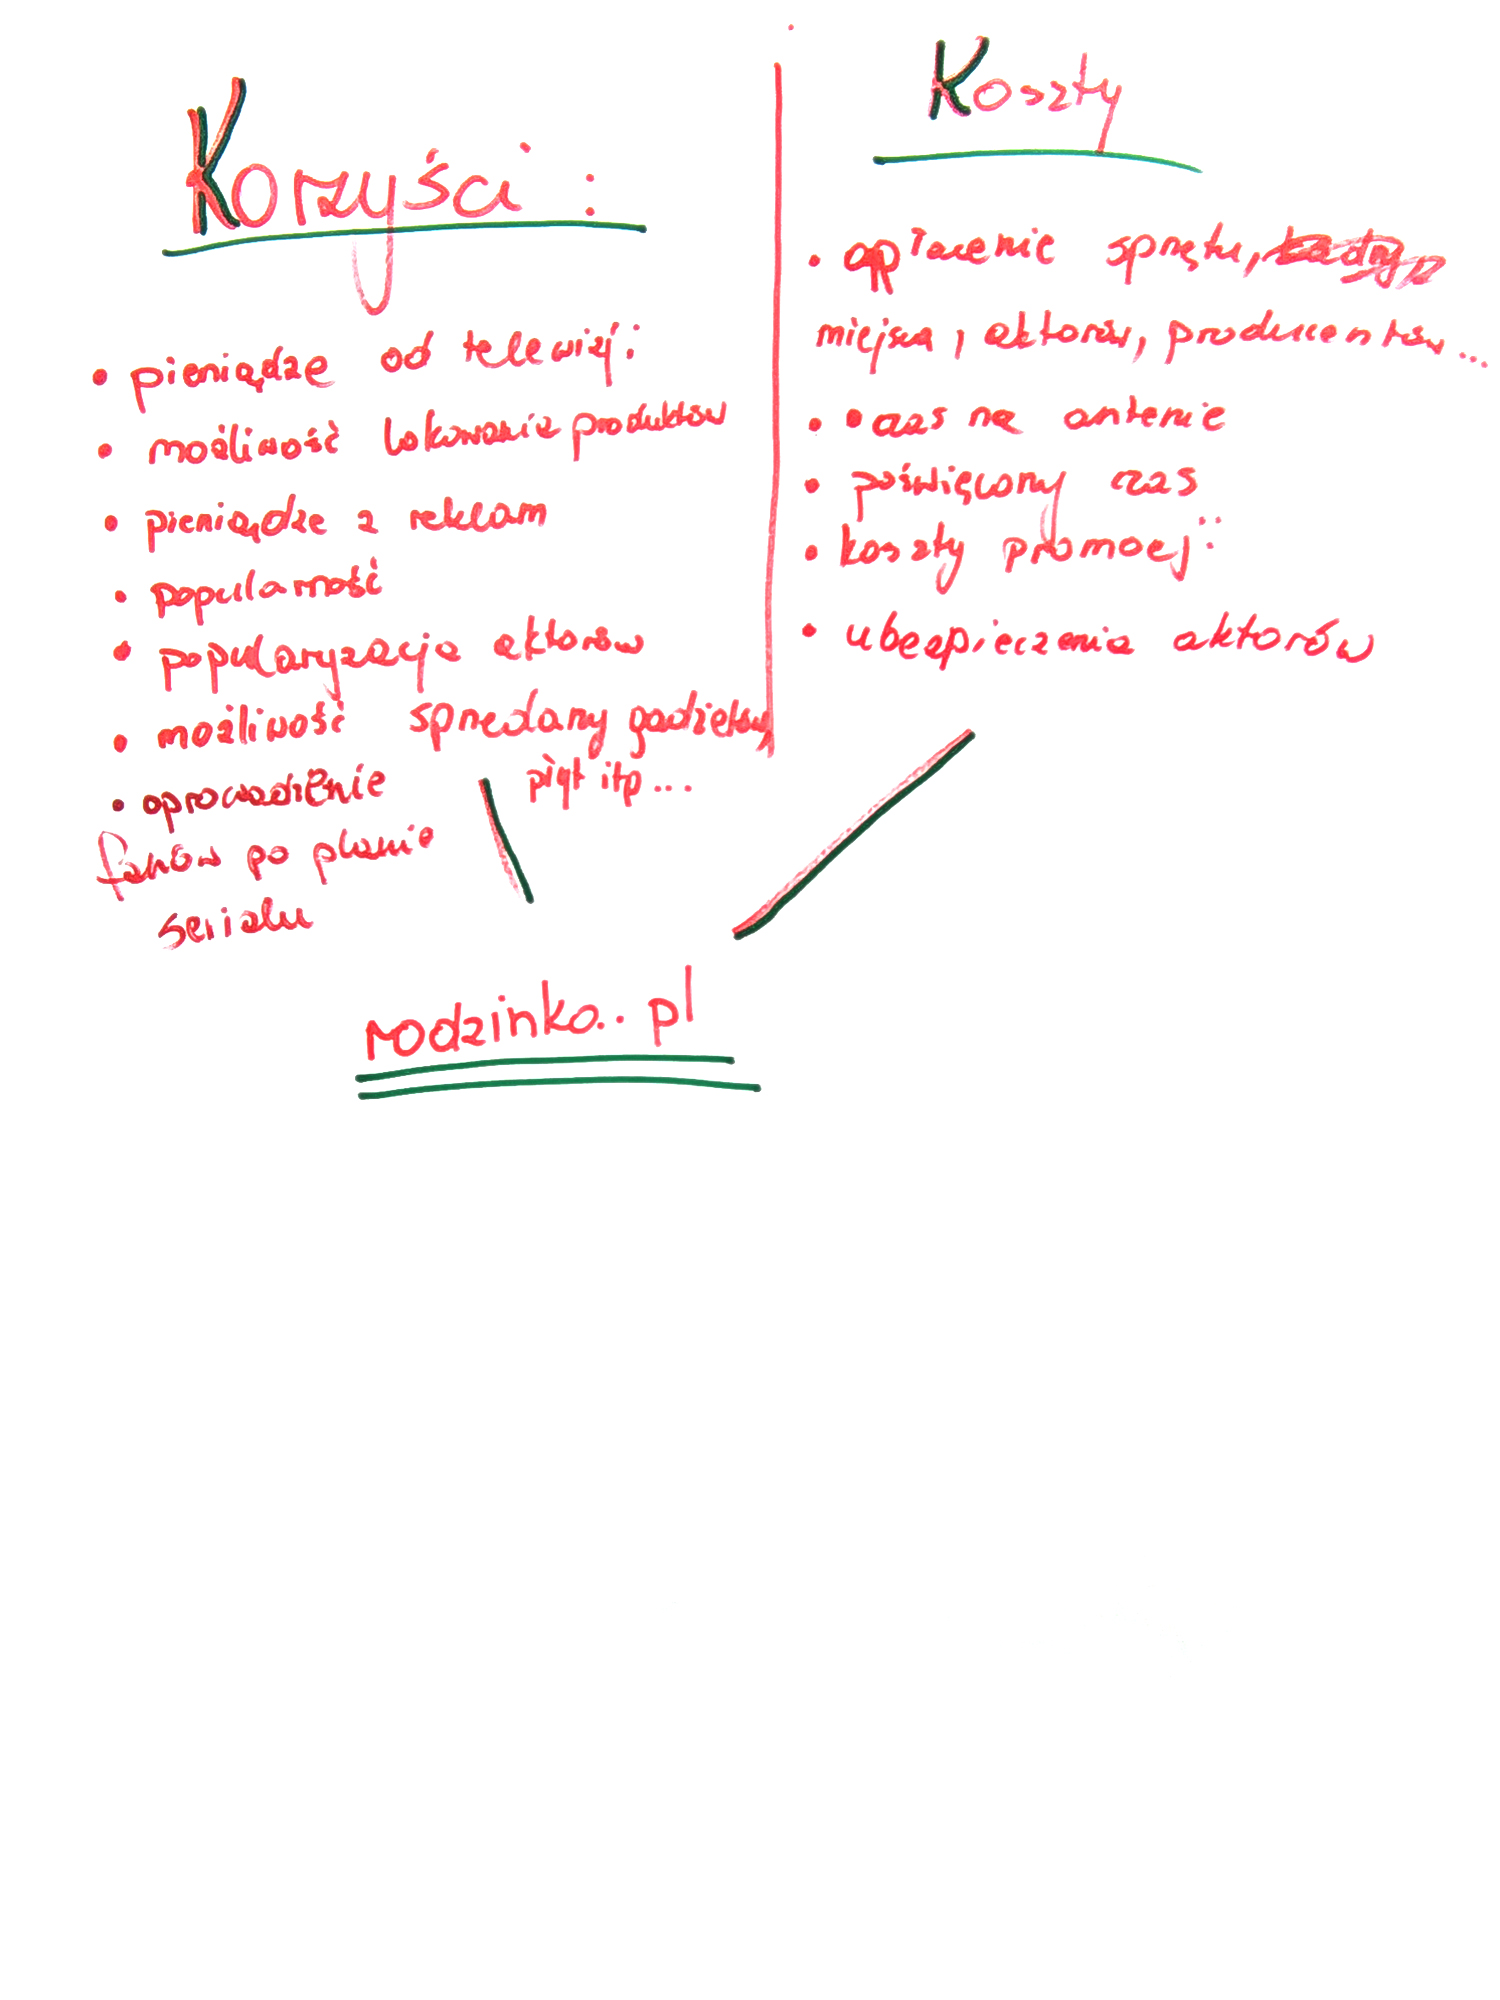 Korzyści:
• pieniądze od telewizji
• możliwość lokowania produktów
• pieniądze z reklam
• popularność
• popularyzacja aktorów
• możliwość sprzedarzy gadżetów,
płyt itp...
• oprowadzenie
fanów po planie
serialu
Koszty
• opłacenie sprzętu,
miejsca, aktorów, producentów...
• czas na antenie
• poświęcony czas
• koszty promocji
• ubezpieczenia aktorów
rodzinka.pl